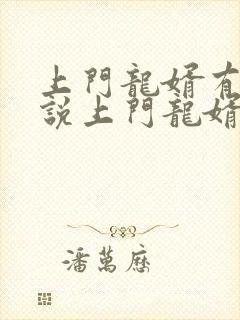 上門龍婿有
説上門龍婿
潘萬歷